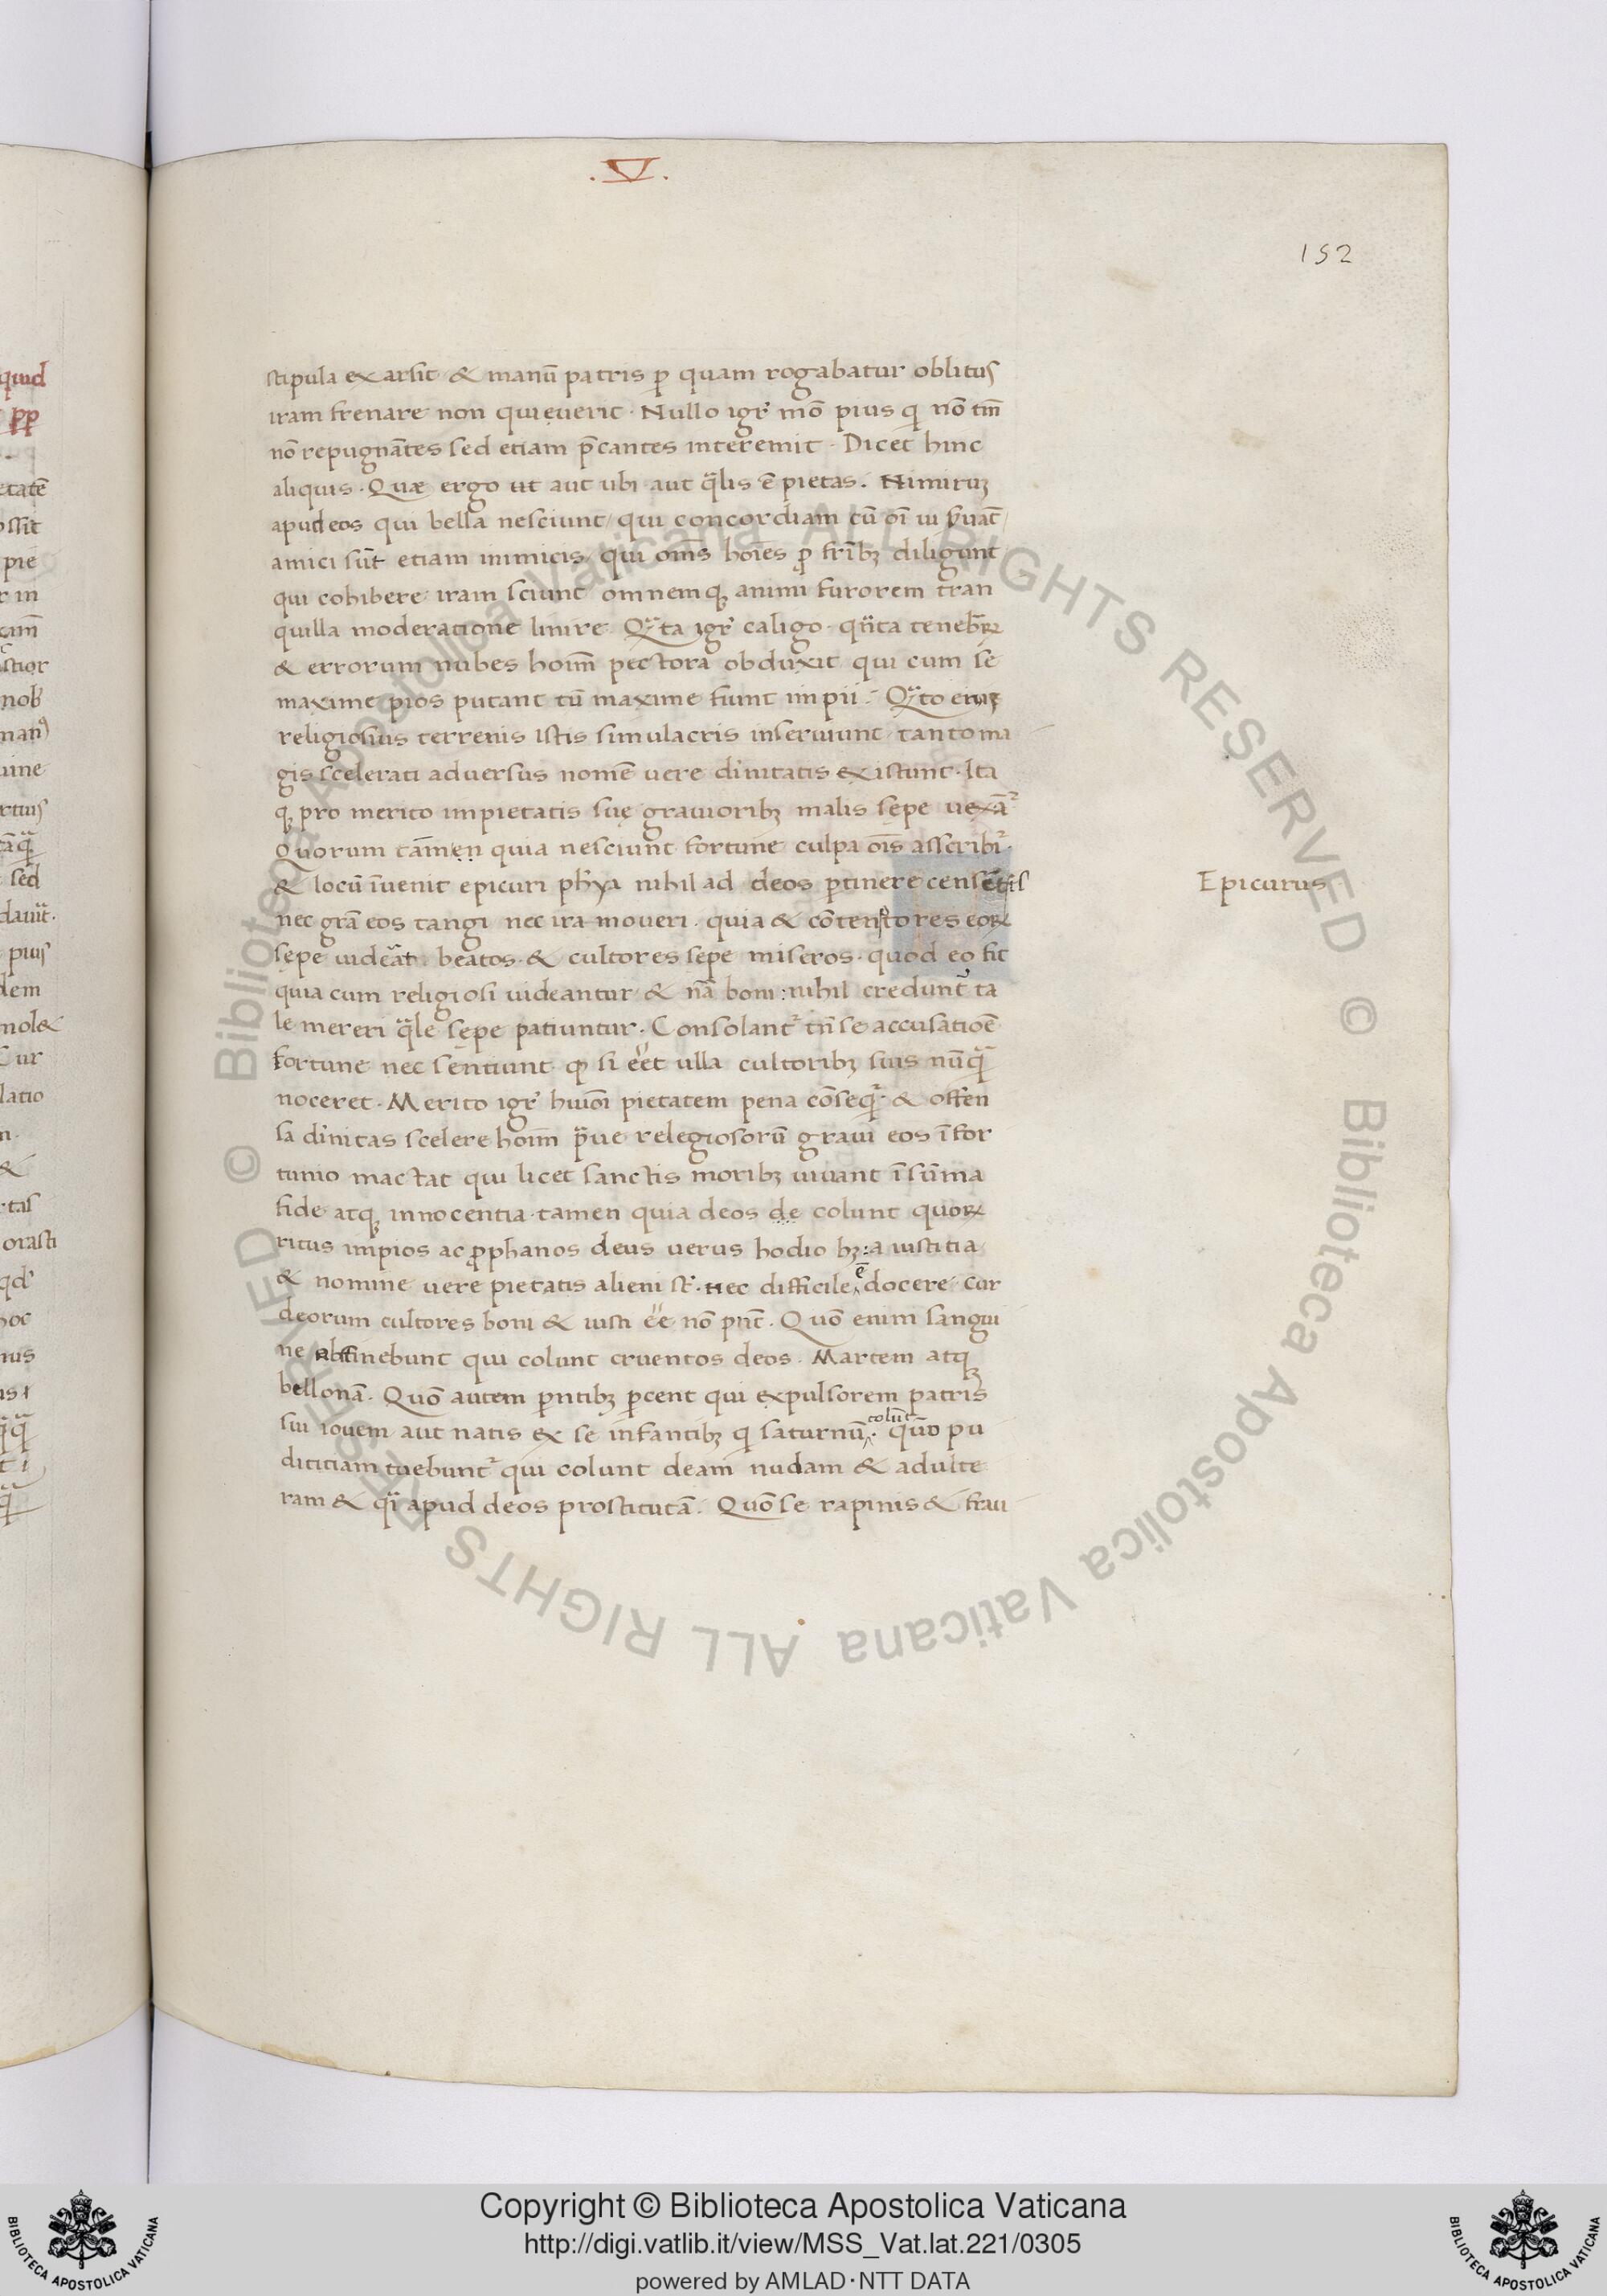 .V.
152
stipula exarsit & manū patris ꝑ quam rogabatur oblitus
iram frenare non quieuerit. Nullo igr̄ mō pius q nō tm̄
nō repugnātes sed etiam p̄cantes interemit. Dicet hinc
aliquis. Quæ ergo ut aut ubi aut q̄lis ē pietas. Nimiruꝫ
apud eos qui bella nesciunt/ qui concordiam cū oī
amici sūt etiam inimicis/ qui om̄s hoīes ꝓ fr̄ibꝫ diligunt
qui cohibere iram sciunt omnemqꝫ animi furorem tran
quilla moderatione linire. Qͣ̄ta igr̄ caligo. qn̄ta teneb̄ꝝ
& errorum nubes hoīm pectora obduxit qui cum se
maxime pios putant tū maxime fiunt impii. Qͣ̄to
religiosius terrenis istis simulacris inseruiunt tanto ma
gis scelerati aduersus nomē uere diuitatis existunt. Ita
qꝫ pro merito impietatis suę grauioribꝫ malis sępe uexāͬ
Quorum tāmen quia nesciunt fortune culpa oīs asscribiͬ.
& locū īuenit epicuri ph̄ya nihil ad deos ꝑtinere censētis
Epicurus
nec grām eos tangi nec ira moueri. quia & cōtentores eoꝝ
sępe uideāt. beatos. & cultores sepe miseros. quod eo fit
quia cum religiosi uideantur & nā boni: nihil credunt ta
le mereri q̄le sępe patiuntur. Consolantͬ tn̄ se accusatiōe
fortune nec sentiunt ꝙ si eēt ulla cultoribꝫ suis nūqͣ̄
noceret. Merito igr̄ huiōi pietatem pena cōseqͬ & offen
sa diuitas scelere hoīm p̄ue relegiosorū graui eos īfor
tunio mactat qui licet sanctis moribꝫ uiuant ī sūma
fide atqꝫ innocentia. tamen quia deos de colunt quoꝝ
ritus impios ac ꝓphanos deus uerus hodio hꝫ: a iustitia
& nomine uere pietatis alieni st̄. nec difficile ē docere cur
deorum cultores boni & iusti eē nō pn̄t. Quō enim sangui
ne abstinebunt qui colunt cruentos deos. Martem atqꝫ
bellonā. Quō autem ꝑntibꝫ ꝑcent qui expulsorem patris
sui iouem aut natis ex se infantibꝫ q saturnū colūt. quō pu
dicitiam tuebuntͬ qui colunt deam nudam & adulte
ram & qͣ̄i apud deos prostitutā. Quō se rapinis & frau
quid
etatē
pie
nob
sed
dem
Cur
latio
orasti
Biblioteca Apostolica Vaticana ALL RIGHTS RESERVED © Biblioteca Apostolica Vaticana ALL RIGHTS RESERVED ©
Copyright © Biblioteca Apostolica Vaticana
http://digi.vatlib.it/view/MSS_Vat.lat.221/0305
powered by AMLAD·NTT DATA
BIBLIOTECA APOSTOLICA VATICANA
BIBLIOTECA APOSTOLICA VATICANA